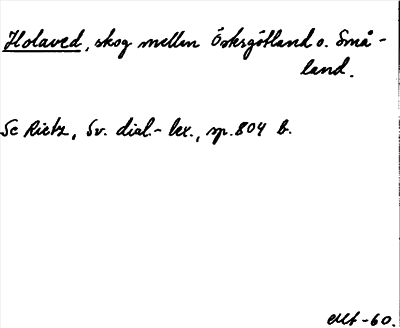 Holaved, skog mellan Östergötland o. Små-
land.
Se Rietz, Sv. dial.-lex., sp. 804 b.
-60.